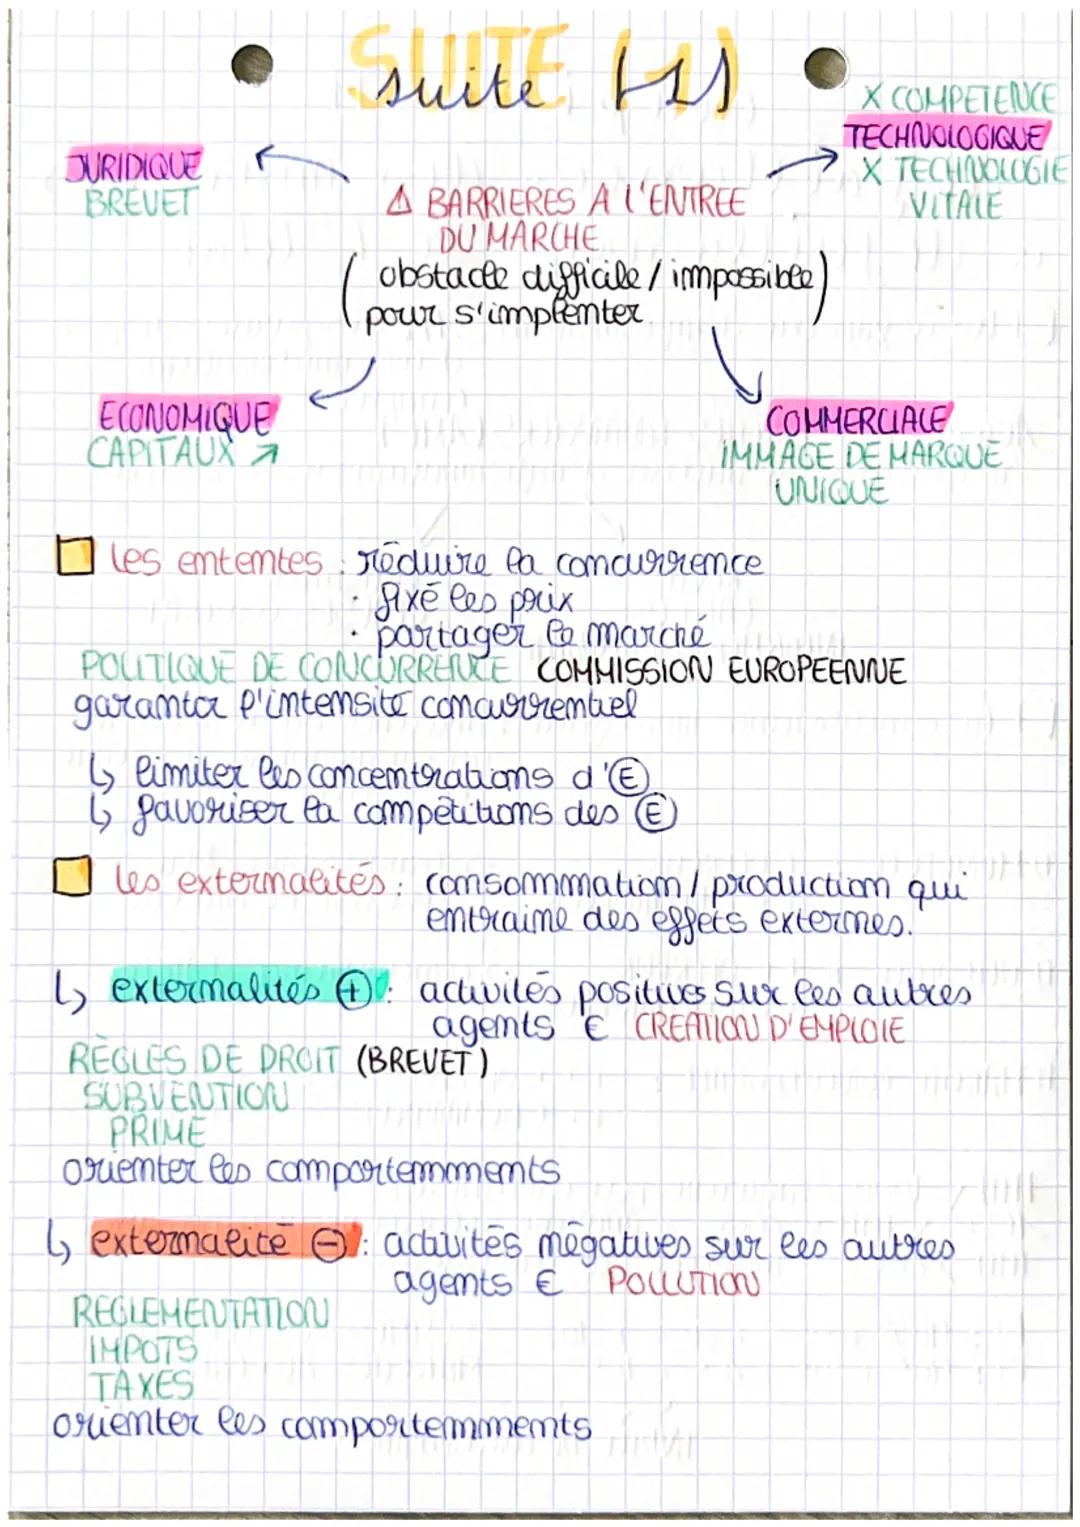 SUITE (1)
suite (1)
X COMPETENCE
TECHNOLOGIQUE
X TECHNOLOGIE
VITALE
JURIDIQUE
BREVET
⚠ BARRIERES A l'ENTREE
DU MARCHE
(obstacle difficile / impossible)
pour s'implenter
ECONOMIQUE
CAPITAUX ↗
COMMERCIALE
IMMAGE DE MARQUE
UNIQUE
les ententes : réduire la concurrence
· fixé les prix
· partager le marché
POLITIQUE DE CONCURRENCE COMMISSION EUROPEENNE
garantir l'intensité concurrentiel
↳ limiter les concentrations d'Ⓔ
↳ favoriser la compétitions des Ⓔ
les externalités : consommmation / production qui
entraine des effets externes.
↳ externalités ⊕ : activités positives sur les autres
agents € CREATION D'EMPLOIE
RÈGLES DE DROIT (BREVET)
SUBVENTION
PRIME
orienter les comportemments
↳ externalité ⊖ : activités négatives sur les autres
agents € POLLUTION
REGLEMENTATION
IMPOTS
TAXES
orienter les comportemments